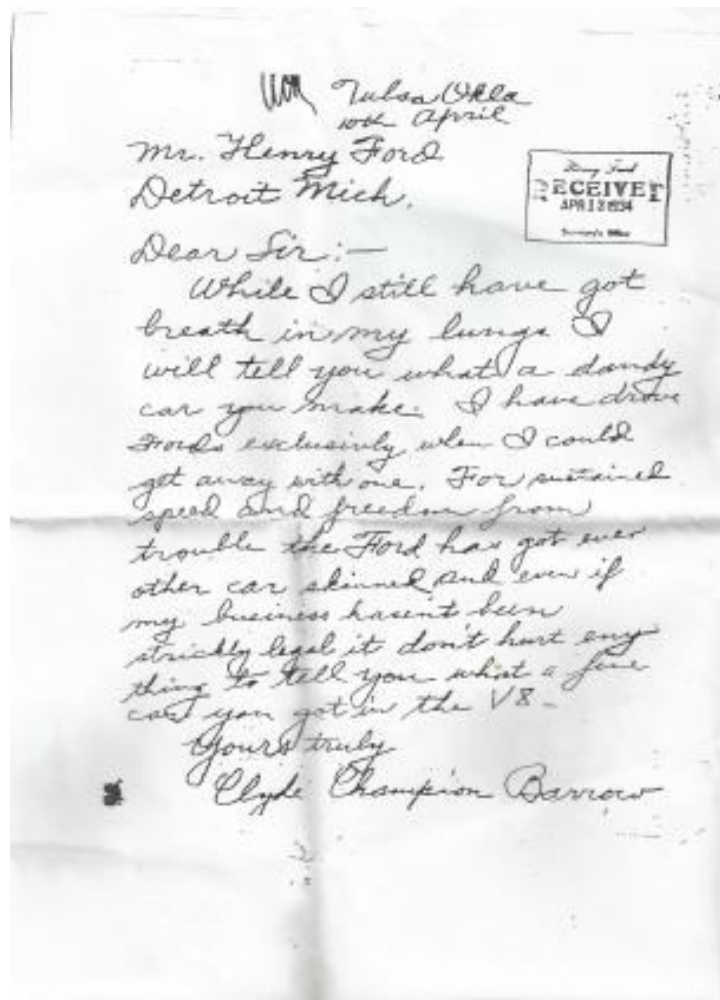 Tulsa Okla
10th April
Mr. Henry Ford
Detroit Mich.
Henry Ford
RECEIVED
APR 13 1934
Secretary's Office
Dear Sir:—
While I still have got
breath in my lungs I
will tell you what a dandy
car you make. I have drove
Fords exclusivly when I could
get away with one. For sustained
speed and freedom from
trouble the Ford has got ever
other car skinned and even if
my business hasen't been
strickly legal it don't hurt eny
thing to tell you what a fine
car you got in the V8 -
Yours truly
Clyde Champion Barrow